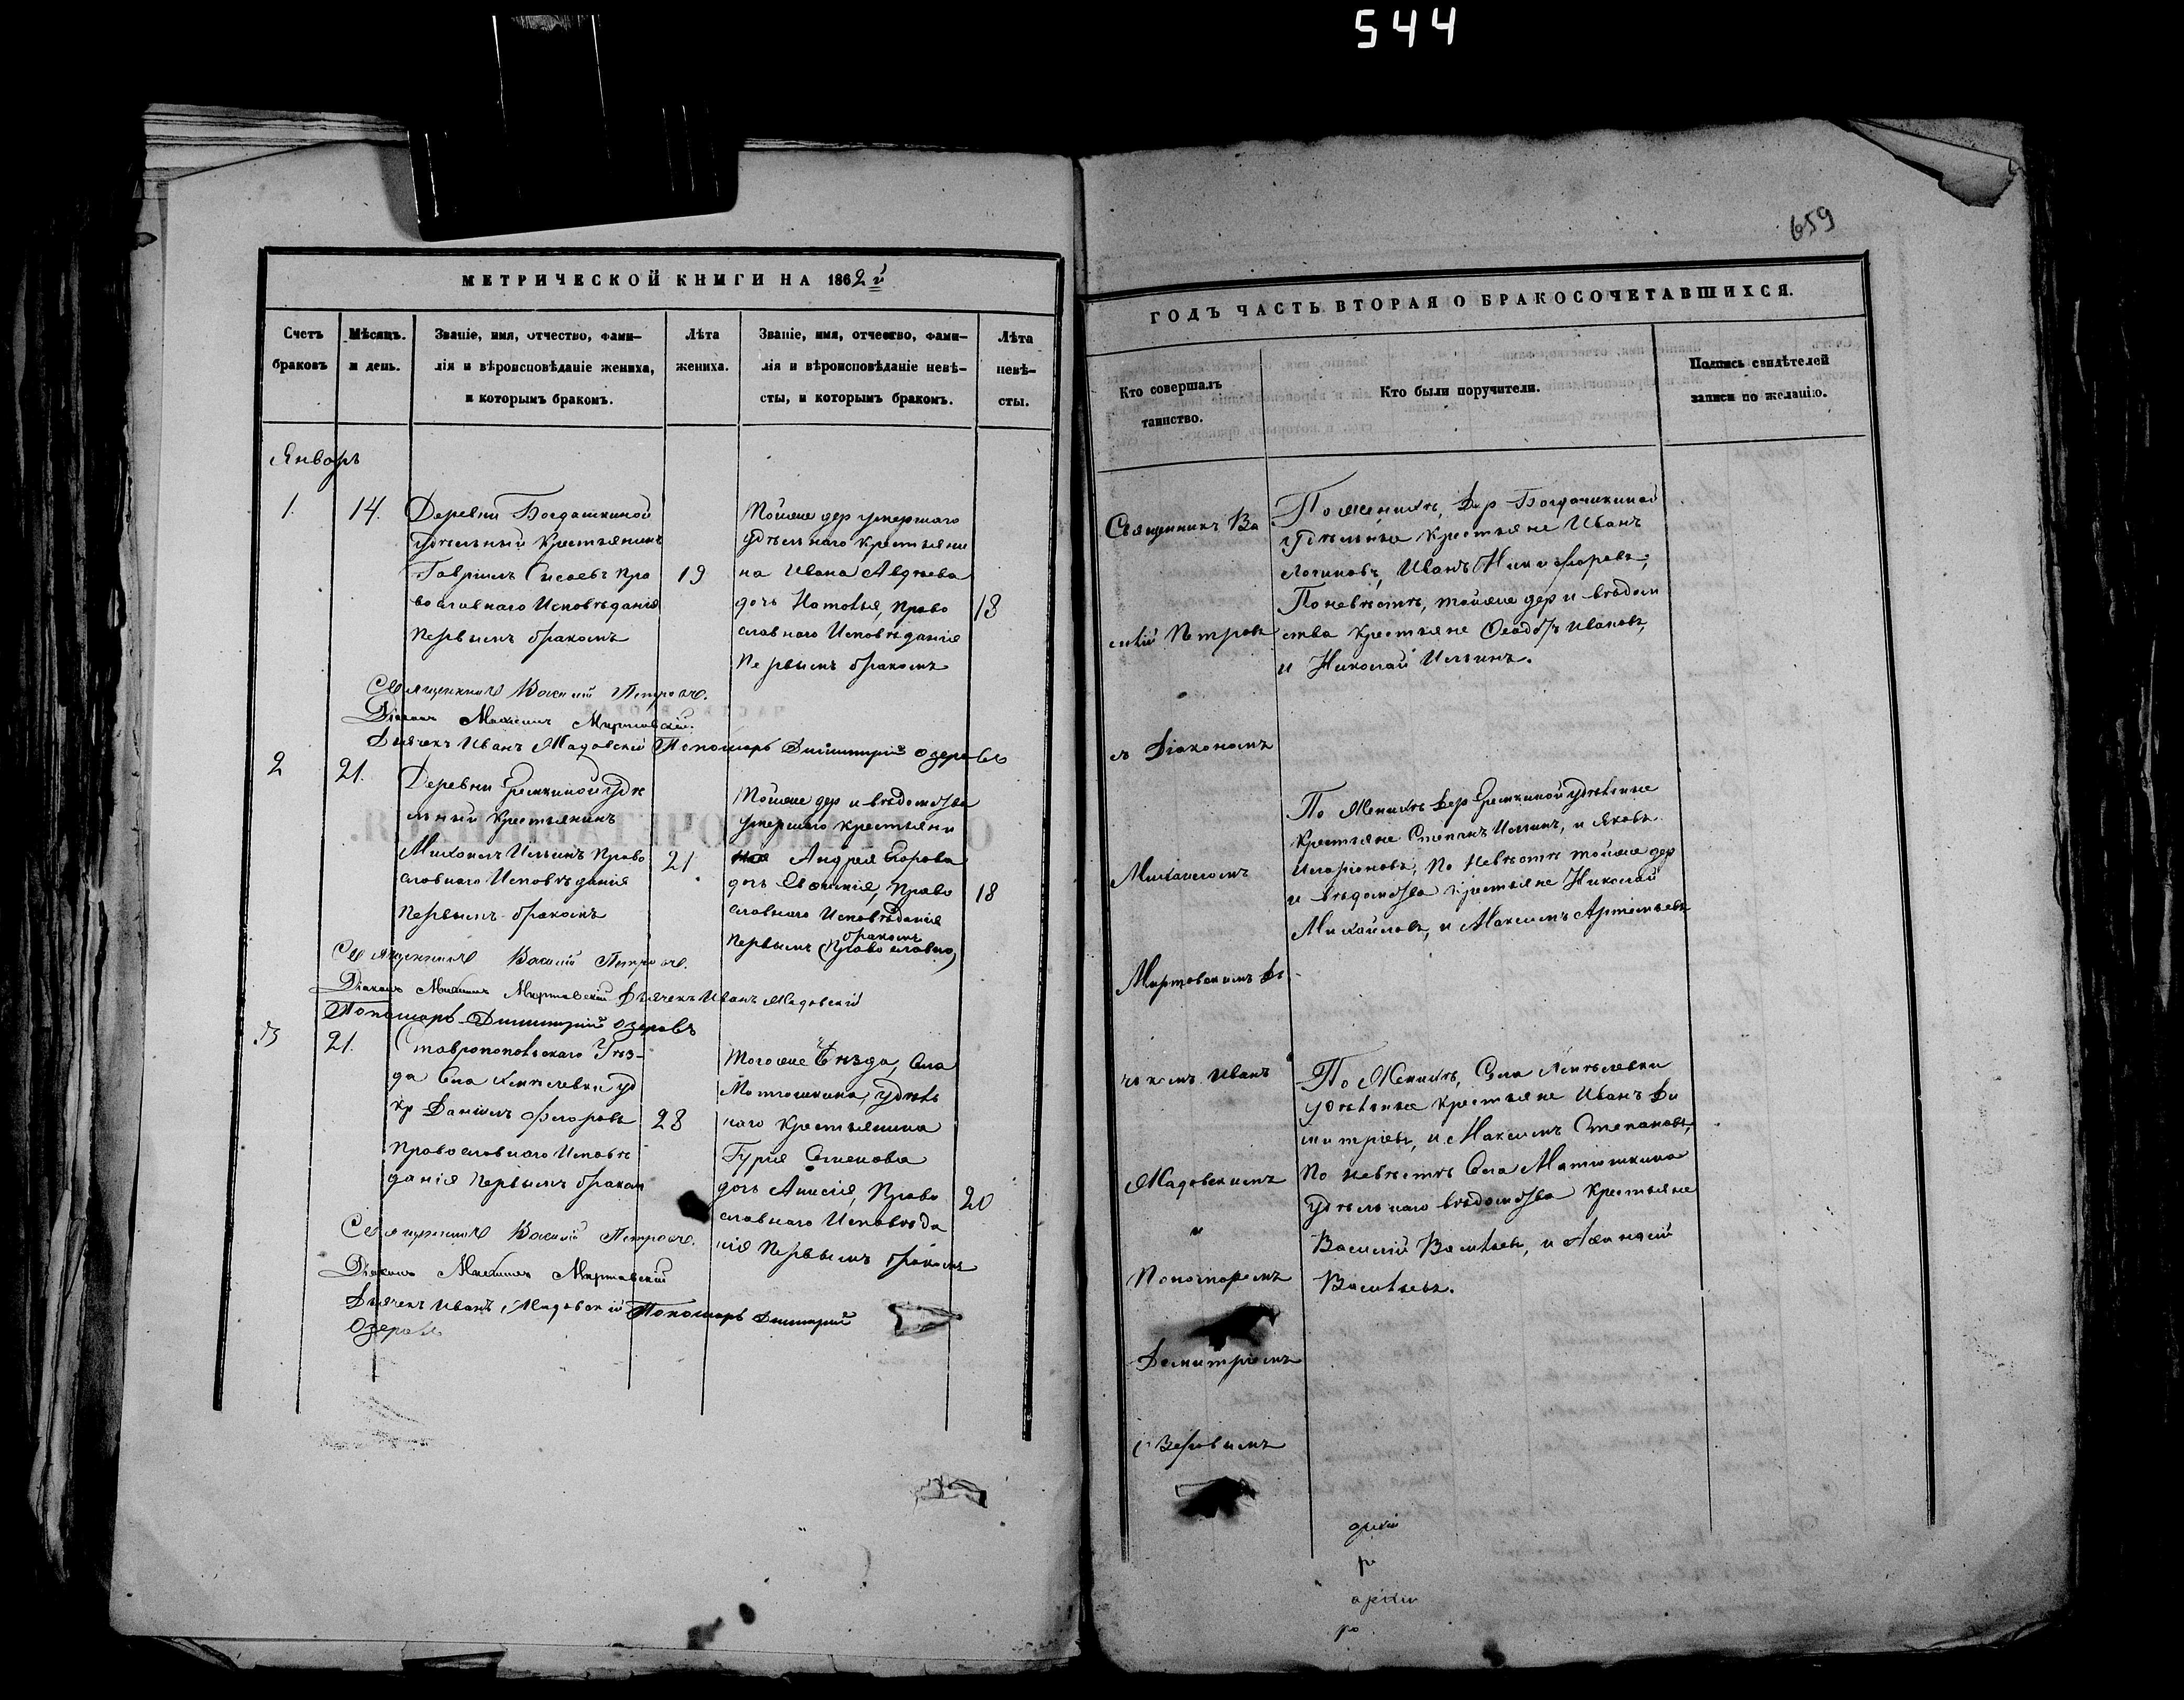 544
659
МЕТРИЧЕСКОЙ КНИГИ НА 1862 й
Счетъ
браковъ
Мѣсяцъ.
и день.
Званіе, имя, отчество, фами-
лія и вѣроисповѣданіе жениха,
и которымъ бракомъ.
Лѣта
жениха.
Званіе, имя, отчество, фами-
лія и вѣроисповѣданіе невѣ-
сты, и которымъ бракомъ.
Лѣта
невѣ-
сты.
Январь
1.
14.
Деревни Богдашкиной
Удѣльный Крестьянинъ
Гавріилъ Сысоевъ Пра
вославнаго Исповѣданія
Первымъ бракомъ
19
Тойже дер умершаго
удѣльнаго Крестьяни
на Ивана Авдѣева
дочь Наталья, Право
славнаго Исповѣданія
Первымъ бракомъ
18
Священникъ Василій Петровъ.
Діаконъ Михаилъ Миртовскій.
Дьячекъ Иванъ Жадовскій Пономарь Димитрій Озеровъ
2
21.
Деревни Еремкиной Удѣ
льный Крестьянинъ
Михаилъ Ильинъ Право
славнаго Исповѣданія
Первымъ бракомъ
21.
Тойже дер и вѣдомства
умершаго крестьяни
Андрея Егорова
дочь Евфимія, Право
славнаго Исповѣданія
бракомъ
Первымъ (Православнаго)
18
Священникъ Василій Петровъ.
Діаконъ Михаилъ Миртовскій Дьячекъ Иванъ Жадовскій
Пономарь Димитрій Озеровъ
3
21.
Ставропольскаго Уѣз-
да Села уд
кр Даніилъ Федоровъ
Православнаго Исповѣ
данія Первымъ бракомъ
23
Тогоже Уѣзда, Села
Матюшкина, удѣль
наго Крестьянина
Гурія Семенова
дочь Анисія, Право
славнаго Исповѣда
нія Первымъ бракомъ
20
Священникъ Василій Петровъ.
Діаконъ Михаилъ Миртовскій
Дьячекъ Иванъ Жадовскій Пономарь Димитрій
Озеровъ
ГОДЪ ЧАСТЬ ВТОРАЯ О БРАКОСОЧЕТАВШИХСЯ.
Кто совершалъ
таинство.
Кто были поручители.
Подпись свидѣтелей
записи по желанію.
Священникъ Ва
силій Петровъ
съ Діакономъ
Михаиломъ
Миртовскимъ Дь
ячкомъ Иванъ
Жадовскимъ
и
Пономаремъ
Демитріемъ
Озеровымъ
По Женихѣ, Дер Богдашкиной
Удѣльные Крестьяне Иванъ
Логиновъ, Иванъ Никифоровъ;
По невѣстѣ, тойже дер и вѣдом
ства Крестьяне Феодоръ Ивановъ,
и Николай Ильинъ.
По Женихѣ Дер Еремкиной удѣльные
Крестьяне Степанъ Ильинъ, и Яковъ
Иларіоновъ, По Невѣстѣ тойже дер
и вѣдомства Крестьяне Николай
Михайловъ, и Максимъ Артемьевъ
По Женихѣ, Села
удѣльные Крестьяне Иванъ Ди
митріевъ, и Максимъ Степановъ,
По невѣстѣ Села Матюшкина
удѣльнаго вѣдомства Крестьяне
Василій Васильевъ, и Афанасій
Васильевъ.